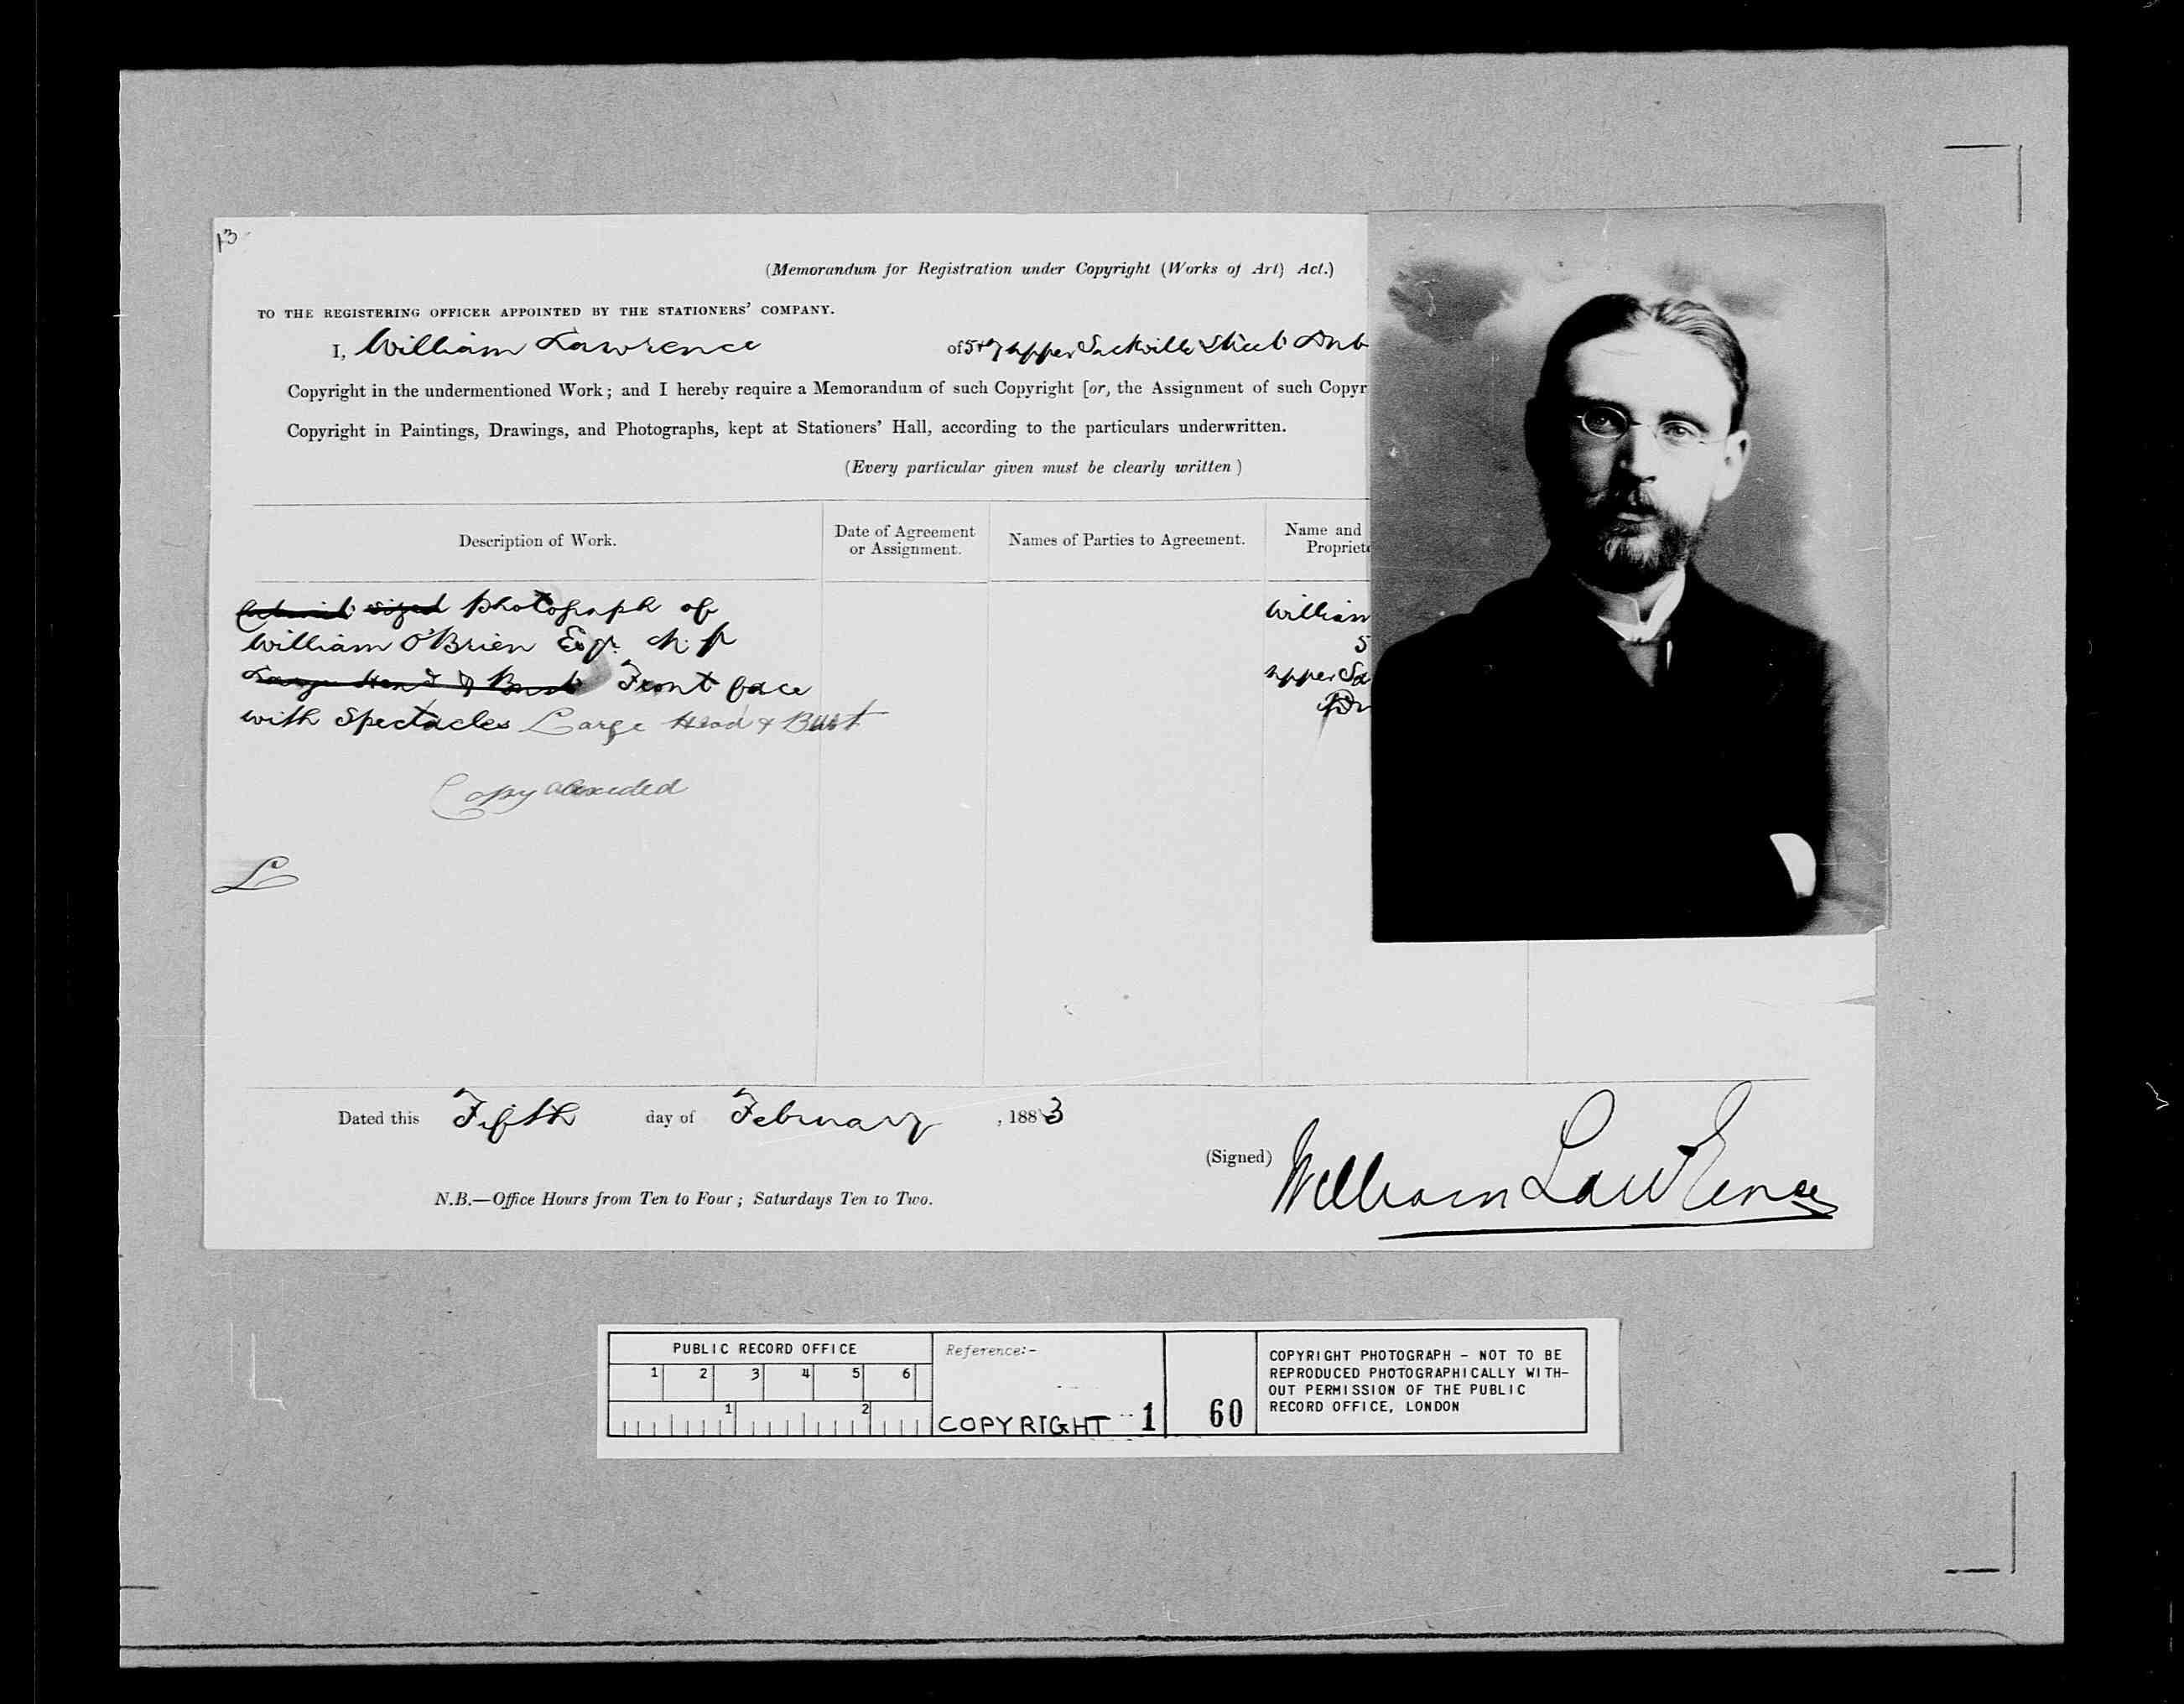 13
(Memorandum for Registration under Copyright (Works of Art) Act.)
TO THE REGISTERING OFFICER APPOINTED BY THE STATIONERS' COMPANY.
I, William Lawrence of 5 & 7 Upper Sackville Street Dub
Copyright in the undermentioned Work; and I hereby require a Memorandum of such Copyright [or, the Assignment of such Copyr
Copyright in Paintings, Drawings, and Photographs, kept at Stationers' Hall, according to the particulars underwritten.
(Every particular given must be clearly written)
Description of Work.
Date of Agreement
or Assignment.
Names of Parties to Agreement.
Name and
Propriet
Cabinet sized Photograph of
William O'Brien Esqr. M.P
Large Head & Bust Front face
with Spectacles Large Head & Bust
Copy
L
William
5
Upper Sa
Du
Dated this Fifth day of February, 1883
(Signed) William Lawrence
N.B.—Office Hours from Ten to Four; Saturdays Ten to Two.
PUBLIC RECORD OFFICE
1 2 3 4 5 6
1 2
Reference:-
COPYRIGHT 1 60
COPYRIGHT PHOTOGRAPH - NOT TO BE
REPRODUCED PHOTOGRAPHICALLY WITH-
OUT PERMISSION OF THE PUBLIC
RECORD OFFICE, LONDON